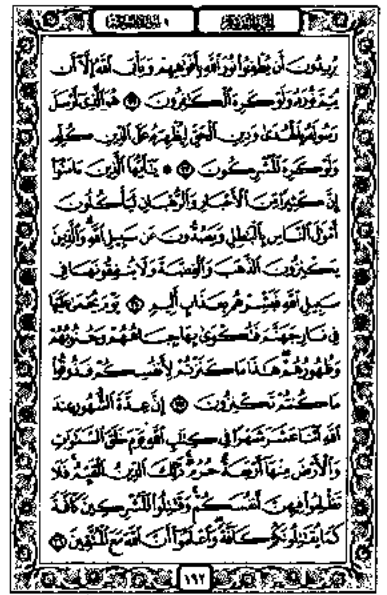 يُرِيدُونَ أَن يُطْفِـُٔوا۟ نُورَ ٱللَّهِ بِأَفْوَٰهِهِمْ وَيَأْبَى ٱللَّهُ إِلَّآ أَن
يُتِمَّ نُورَهُۥ وَلَوْ كَرِهَ ٱلْكَـٰفِرُونَ ٣٢ هُوَ ٱلَّذِىٓ أَرْسَلَ
رَسُولَهُۥ بِٱلْهُدَىٰ وَدِينِ ٱلْحَقِّ لِيُظْهِرَهُۥ عَلَى ٱلدِّينِ كُلِّهِۦ
وَلَوْ كَرِهَ ٱلْمُشْرِكُونَ ٣٣ ۞ يَـٰٓأَيُّهَا ٱلَّذِينَ ءَامَنُوٓا۟
إِنَّ كَثِيرًا مِّنَ ٱلْأَحْبَارِ وَٱلرُّهْبَانِ لَيَأْكُلُونَ
أَمْوَٰلَ ٱلنَّاسِ بِٱلْبَـٰطِلِ وَيَصُدُّونَ عَن سَبِيلِ ٱللَّهِ ۗ وَٱلَّذِينَ
يَكْنِزُونَ ٱلذَّهَبَ وَٱلْفِضَّةَ وَلَا يُنفِقُونَهَا فِى
سَبِيلِ ٱللَّهِ فَبَشِّرْهُم بِعَذَابٍ أَلِيمٍ ٣٤ يَوْمَ يُحْمَىٰ عَلَيْهَا
فِى نَارِ جَهَنَّمَ فَتُكْوَىٰ بِهَا جِبَاهُهُمْ وَجُنُوبُهُمْ
وَظُهُورُهُمْ ۖ هَـٰذَا مَا كَنَزْتُمْ لِأَنفُسِكُمْ فَذُوقُوا۟
مَا كُنتُمْ تَكْنِزُونَ ٣٥ إِنَّ عِدَّةَ ٱلشُّهُورِ عِندَ
ٱللَّهِ ٱثْنَا عَشَرَ شَهْرًا فِى كِتَـٰبِ ٱللَّهِ يَوْمَ خَلَقَ ٱلسَّمَـٰوَٰتِ
وَٱلْأَرْضَ مِنْهَآ أَرْبَعَةٌ حُرُمٌ ۚ ذَٰلِكَ ٱلدِّينُ ٱلْقَيِّمُ ۚ فَلَا
تَظْلِمُوا۟ فِيهِنَّ أَنفُسَكُمْ ۚ وَقَـٰتِلُوا۟ ٱلْمُشْرِكِينَ كَآفَّةً
كَمَا يُقَـٰتِلُونَكُمْ كَآفَّةً ۚ وَٱعْلَمُوٓا۟ أَنَّ ٱللَّهَ مَعَ ٱلْمُتَّقِينَ ٣٦
١٩٢